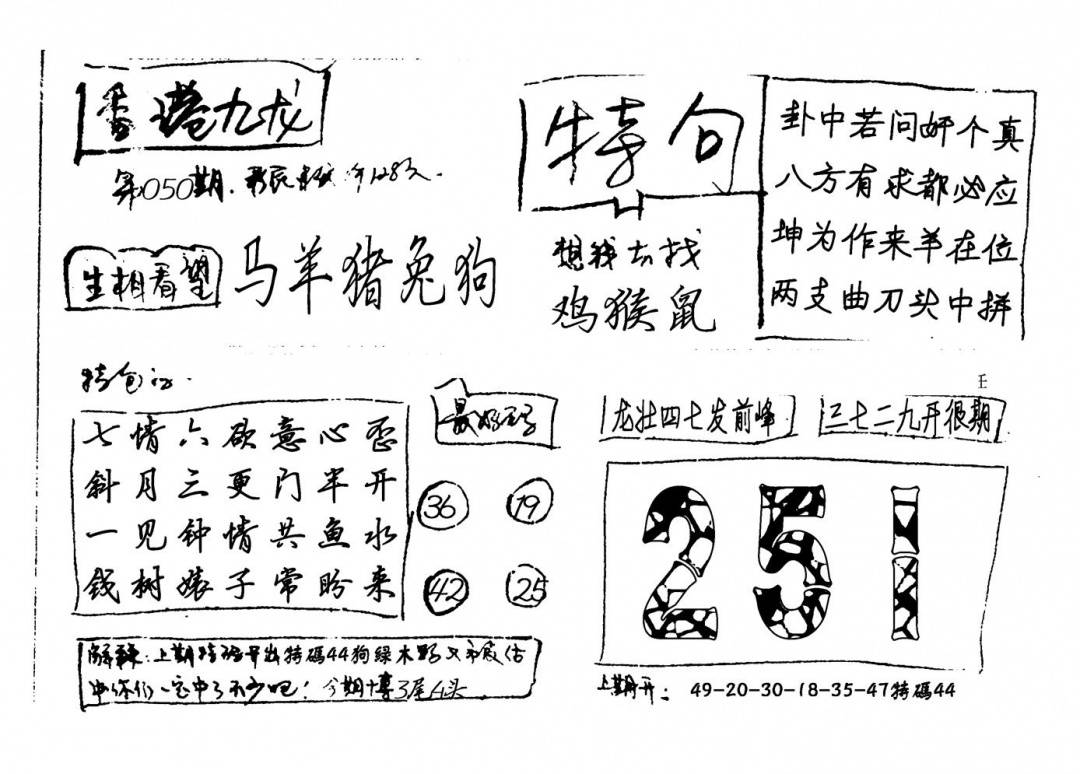 香港九龙
第050期.
生相看望
马羊猪兔狗
特句
想我去找
鸡猴鼠
卦中若问好个真
八方有求都必应
坤为作来羊在位
两支曲刀头中拼
特包
七情六欲意心歪
斜月三更门半开
一见钟情共鱼水
钱树婊子常盼来
最好
36
19
42
25
王
龙壮四七发前峰
三七二九开很期
251
解释:上期特码开出特碼44狗绿木野
中你们一定中了不少吧! 今期博3尾4头
上期开: 49-20-30-18-35-47特碼44